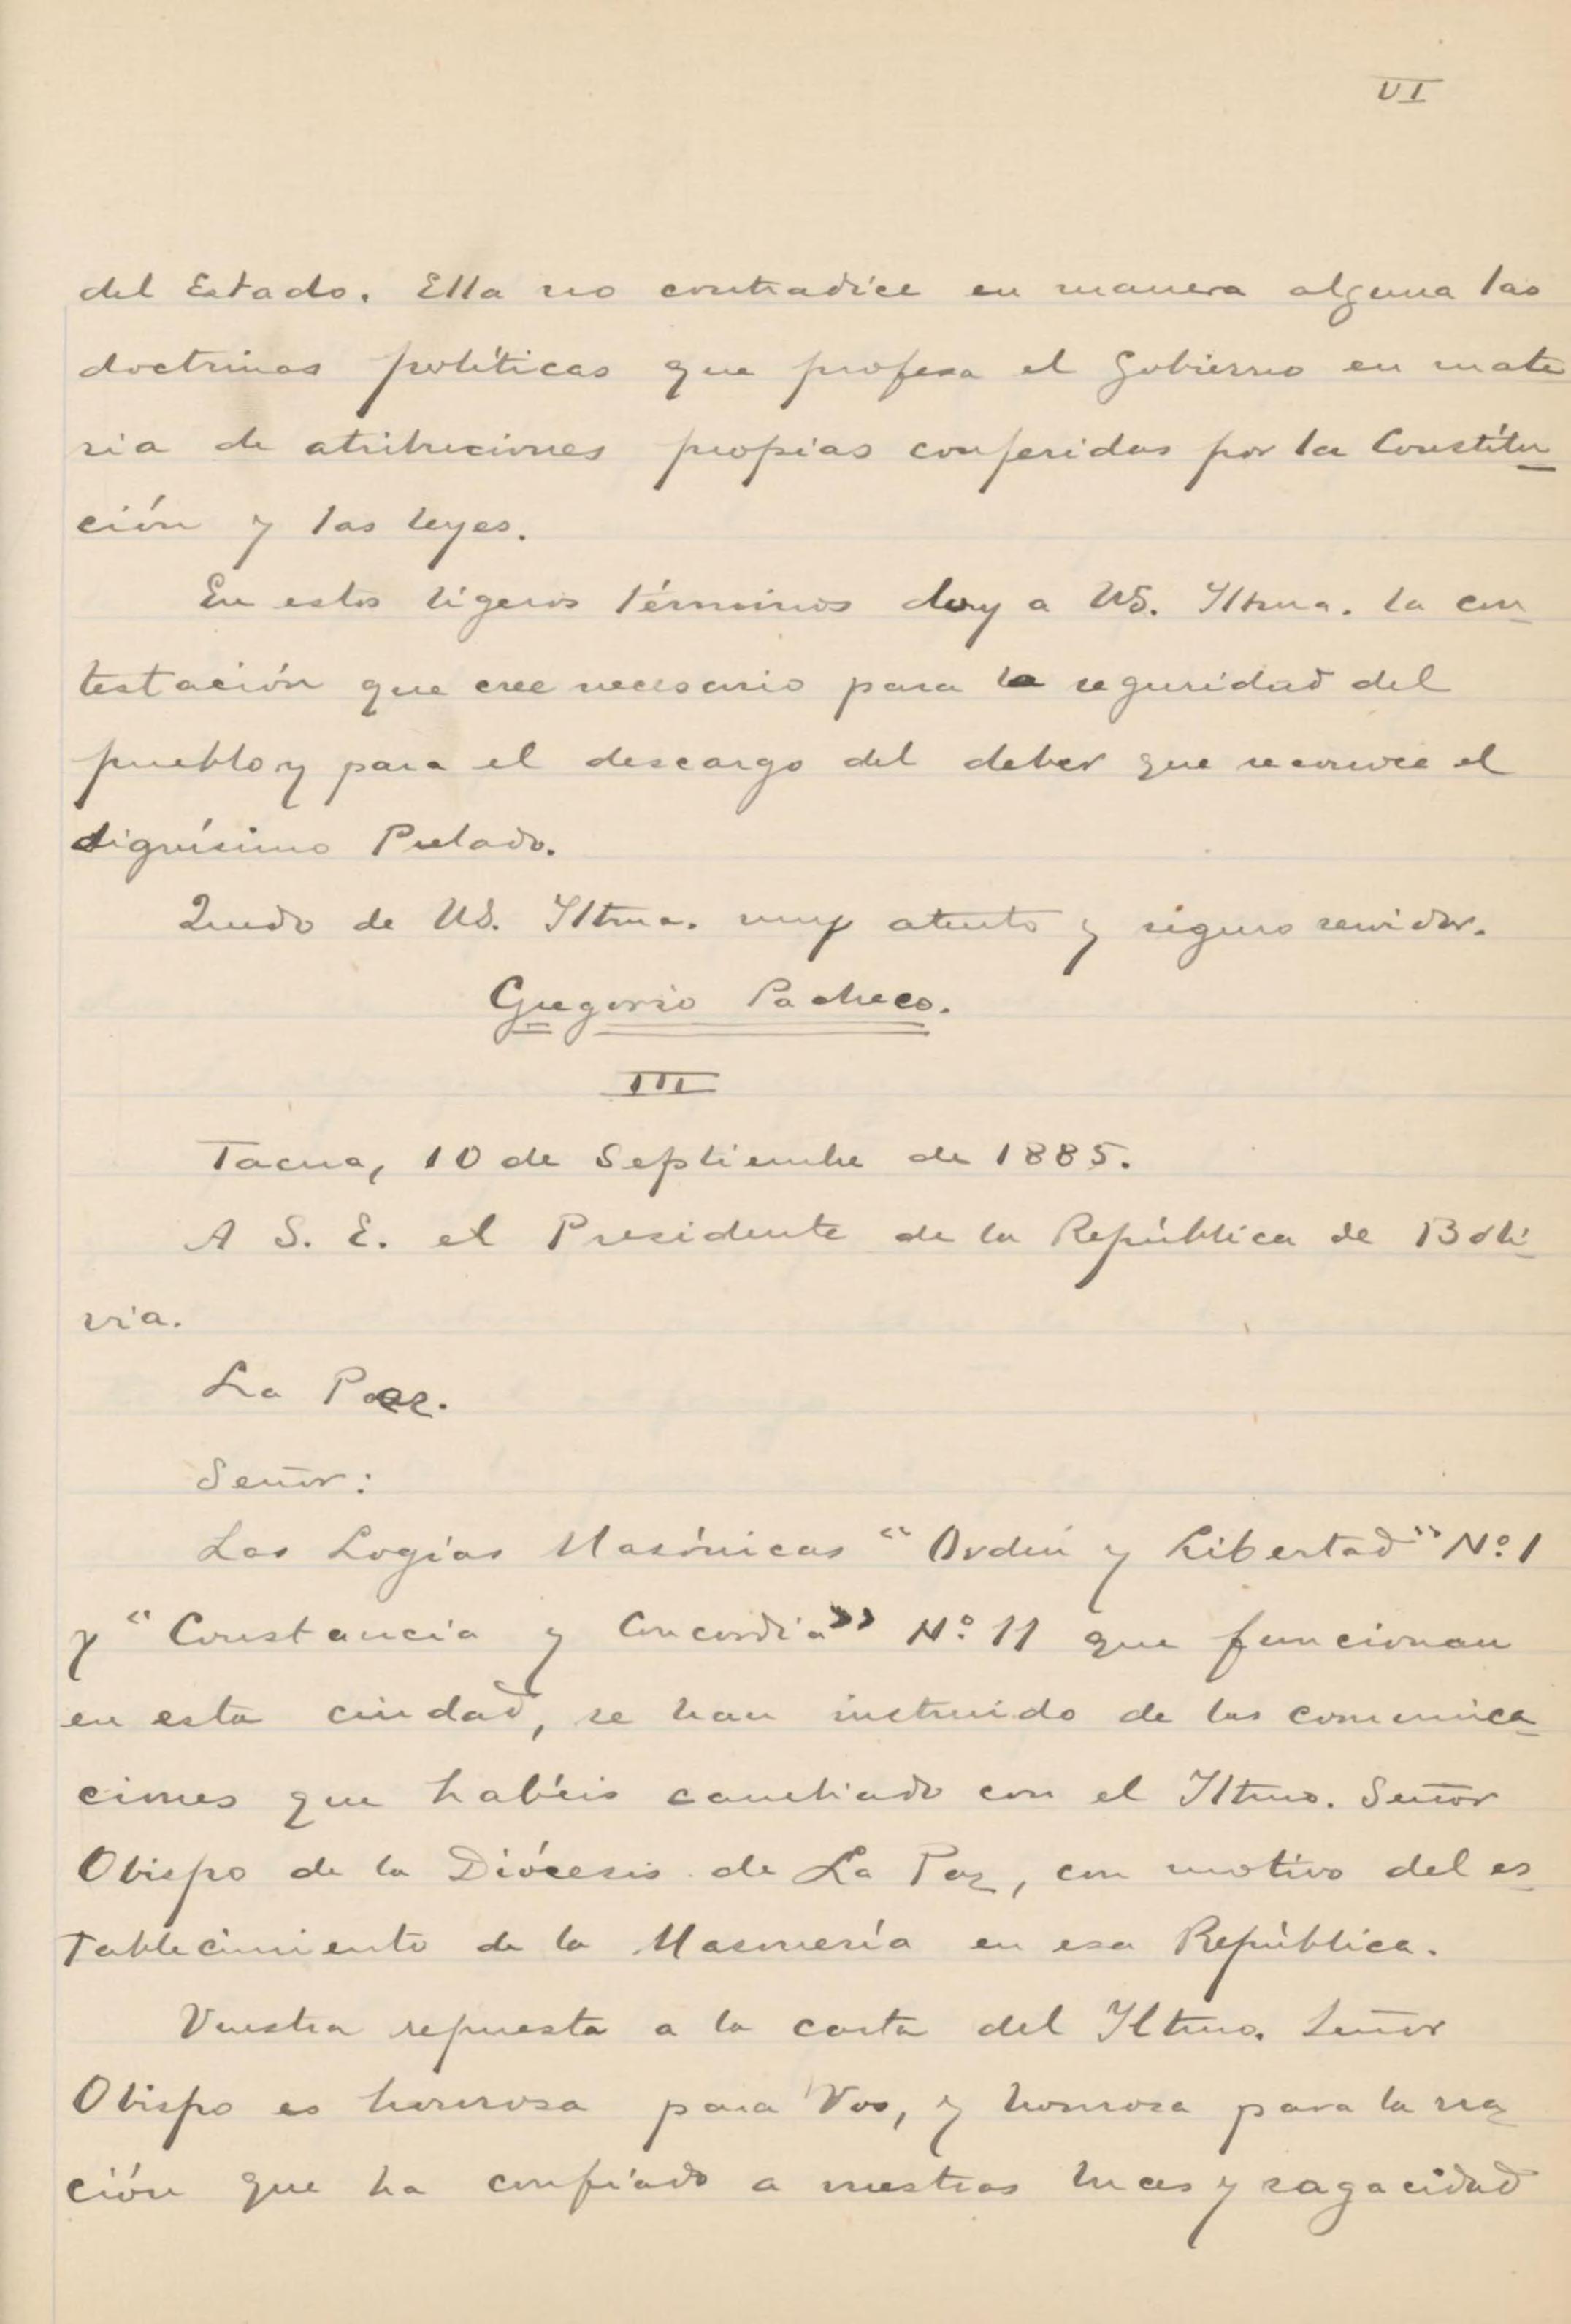 VI
del Estado. Ella no contradice en manera alguna las
doctrinas políticas que profesa el Gobierno en mate
ria de atribuciones propias conferidas por la Constitu-
ción y las leyes.
En estos ligeros términos doy a US. Iltma. la con-
testación que cree necesario para la seguridad del
pueblo y para el descargo del deber que reconoce el
dignísimo Prelado.
Quedo de US. Iltma. muy atento y seguro servidor.
Gregorio Pacheco.
III
Tacna, 10 de Septiembre de 1885.
A S. E. el Presidente de la República de Boli-
via.
La Paz.
Señor:
Las Logias Masónicas "Orden y Libertad" Nº 1
y "Constancia y Concordia" Nº 11 que funcionan
en esta ciudad, se han instruido de las comunica-
ciones que habéis cambiado con el Iltmo. Señor
Obispo de la Diócesis de La Paz, con motivo del es-
tablecimiento de la Masonería en esa República.
Vuestra repuesta a la carta del Iltmo. Señor
Obispo es honrosa para Vos, y honrosa para la na-
ción que ha confiado a vuestras luces y sagacidad